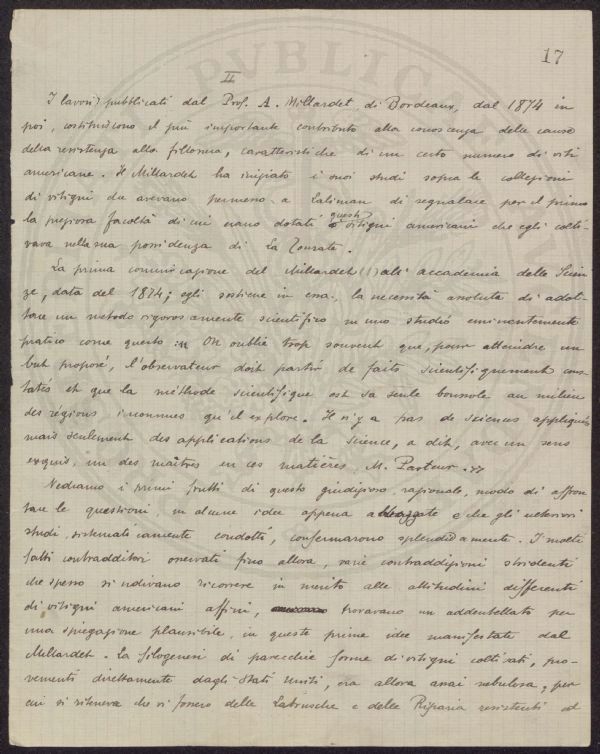 PUBLICA
17
II
I lavori pubblicati dal Prof. A. Millardet, di Bordeaux, dal 1874 in
poi, costituiscono il più importante contributo alla conoscenza delle cause
della resistenza alla fillossera, caratteristiche di un certo numero di viti
americane. Il Millardet ha iniziato i suoi studi sopra le collezioni
di vitigni che avevano permesso a Laliman di segnalare per il primo
la preziosa facoltà di cui erano dotati questi vitigni americani che egli colti-
vava nella sua possidenza di La Tourate.
La prima comunicazione del Millardet (1) all'accademia delle Scien
ze, data del 1874; egli sostiene in essa, la necessità assoluta di adot-
tare un metodo rigorosamente scientifico in uno studio eminentemente
pratico come questo: "On oublie trop souvent que, pour atteindre un
but proposé, l'observateur doit partir de faits scientifiquement cons-
tatés et que la méthode scientifique est sa seule boussole au milieu
des régions inconnues qu'il explore. Il n'y a pas de sciences appliqués
mais seulement des applications de la science, a dit, avec un sens
exquis, un des maîtres en ces matières, M. Pasteur."
Vediamo i primi frutti di questo giudizioso, razionale, modo di affron
tare le questioni, in alcune idee appena abbozzate e che gli ulteriori
studi, sistematicamente condotti, confermarono splendidamente. I molti
fatti contradditori osservati fino allora, varie contraddizioni stridenti
che spesso si udivano ricorrere in merito alle attitudini differenti
di vitigni americani affini, trovavano un addentellato per
una spiegazione plausibile, in queste prime idee manifestate dal
Millardet. La filogenesi di parecchie forme di vitigni coltivati, pro-
venienti direttamente dagli Stati Uniti, era allora assai nebulosa, per
cui si riteneva che vi fossero delle Labrusche e delle Riparia resistenti ed